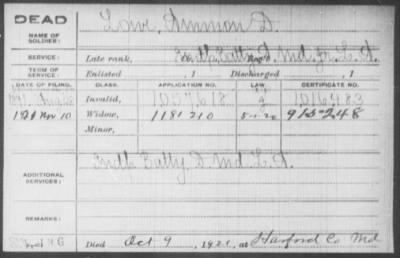 DEAD
NAME OF SOLDIER: Lowe, Ammon D.
SERVICE: Late rank, Batty D, Md. L. A.
TERM OF SERVICE: Enlisted , 1 Discharged , 1
DATE OF FILING. CLASS. APPLICATION NO. LAW. CERTIFICATE NO.
Invalid,
1921 Nov 10 Widow, 1181210 5-1-20 915-248
Minor,
ADDITIONAL SERVICES: Batty D Md L. A.
REMARKS:
Died Oct 9, 1921, at Harford Co Md